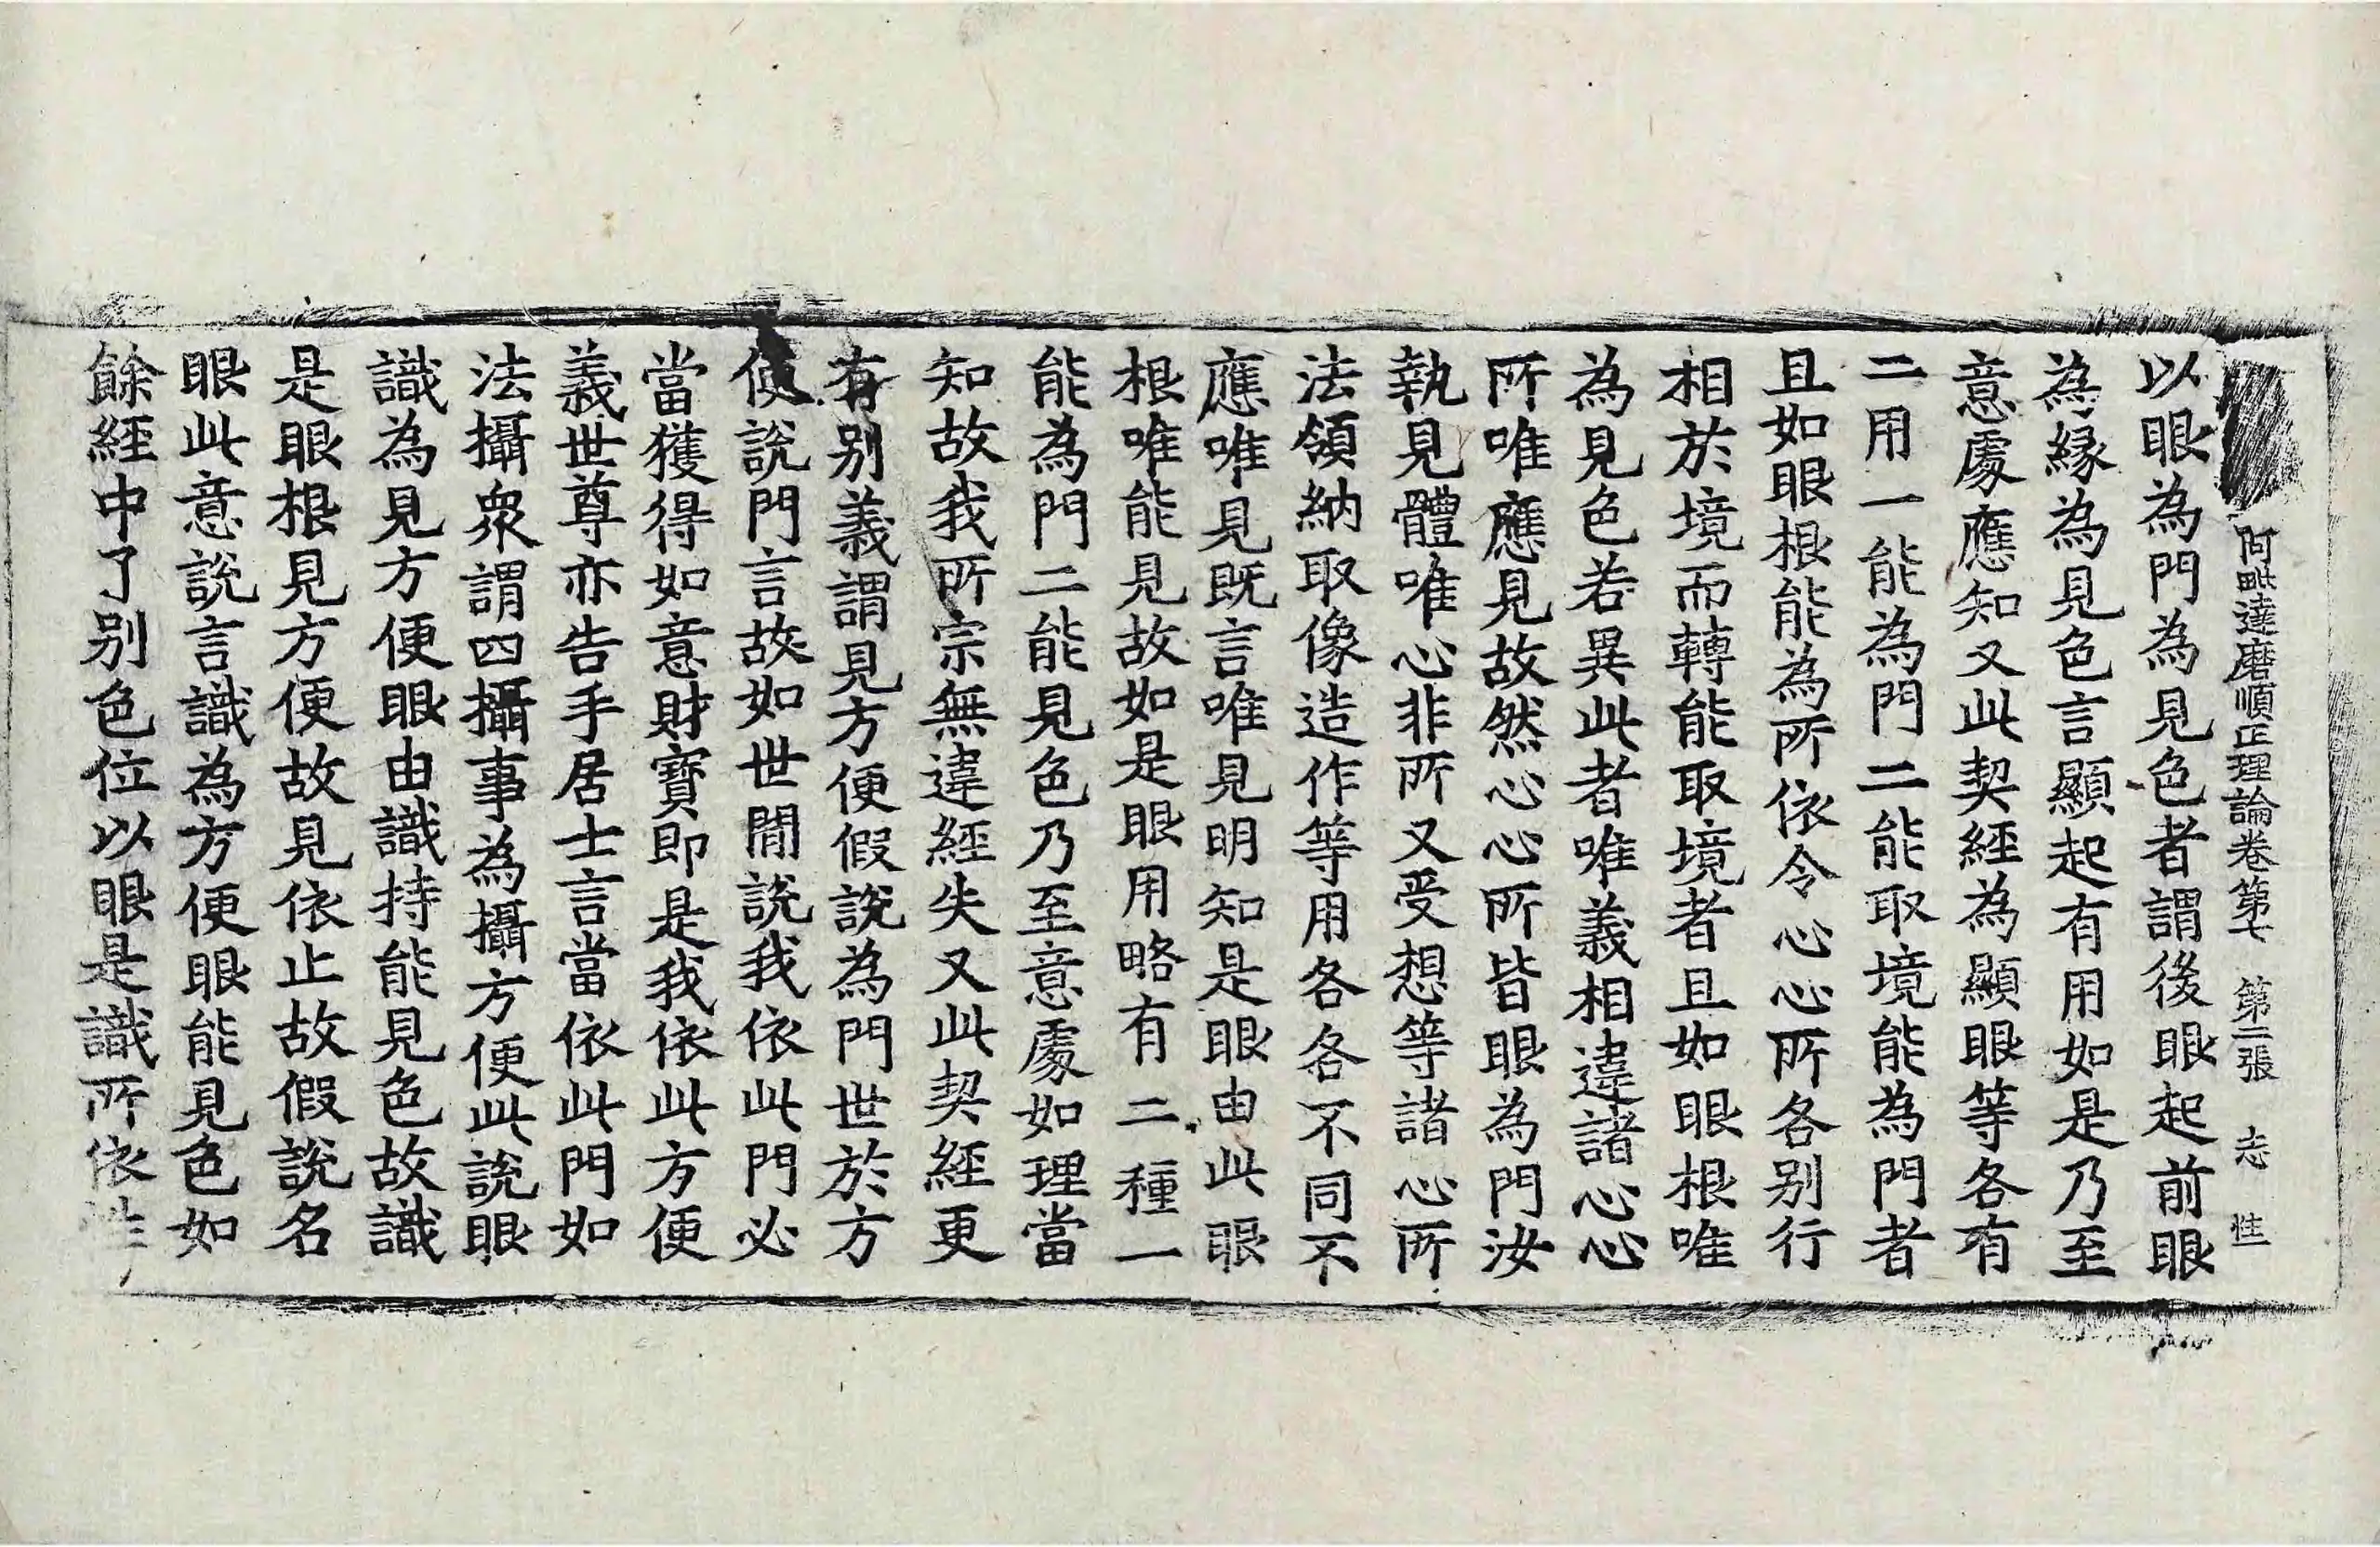 阿毗達磨順正理論卷第七 第二張 志 性
以眼為門為見色者謂後眼起前眼
為緣為見色言顯起有用如是乃至
意處應知又此契經為顯眼等各有
二用一能為門二能取境能為門者
且如眼根能為所依令心心所各別行
相於境而轉能取境者且如眼根唯
為見色若異此者唯義相違諸心心
所唯應見故然心心所皆眼為門汝
執見體唯心非所又受想等諸心所
法領納取像造作等用各各不同不
應唯見既言唯見明知是眼由此眼
根唯能見故如是眼用略有二種一
能為門二能見色乃至意處如理當
知故我所宗無違經失又此契經更
有別義謂見方便假說為門世於方
便說門言故如世間說我依此門必
當獲得如意財寶即是我依此方便
義世尊亦告手居士言當依此門如
法攝眾謂四攝事為攝方便此說眼
識為見方便眼由識持能見色故識
是眼根見方便故見依止故假說名
眼此意說言識為方便眼能見色如
餘經中了別色位以眼是識所依性